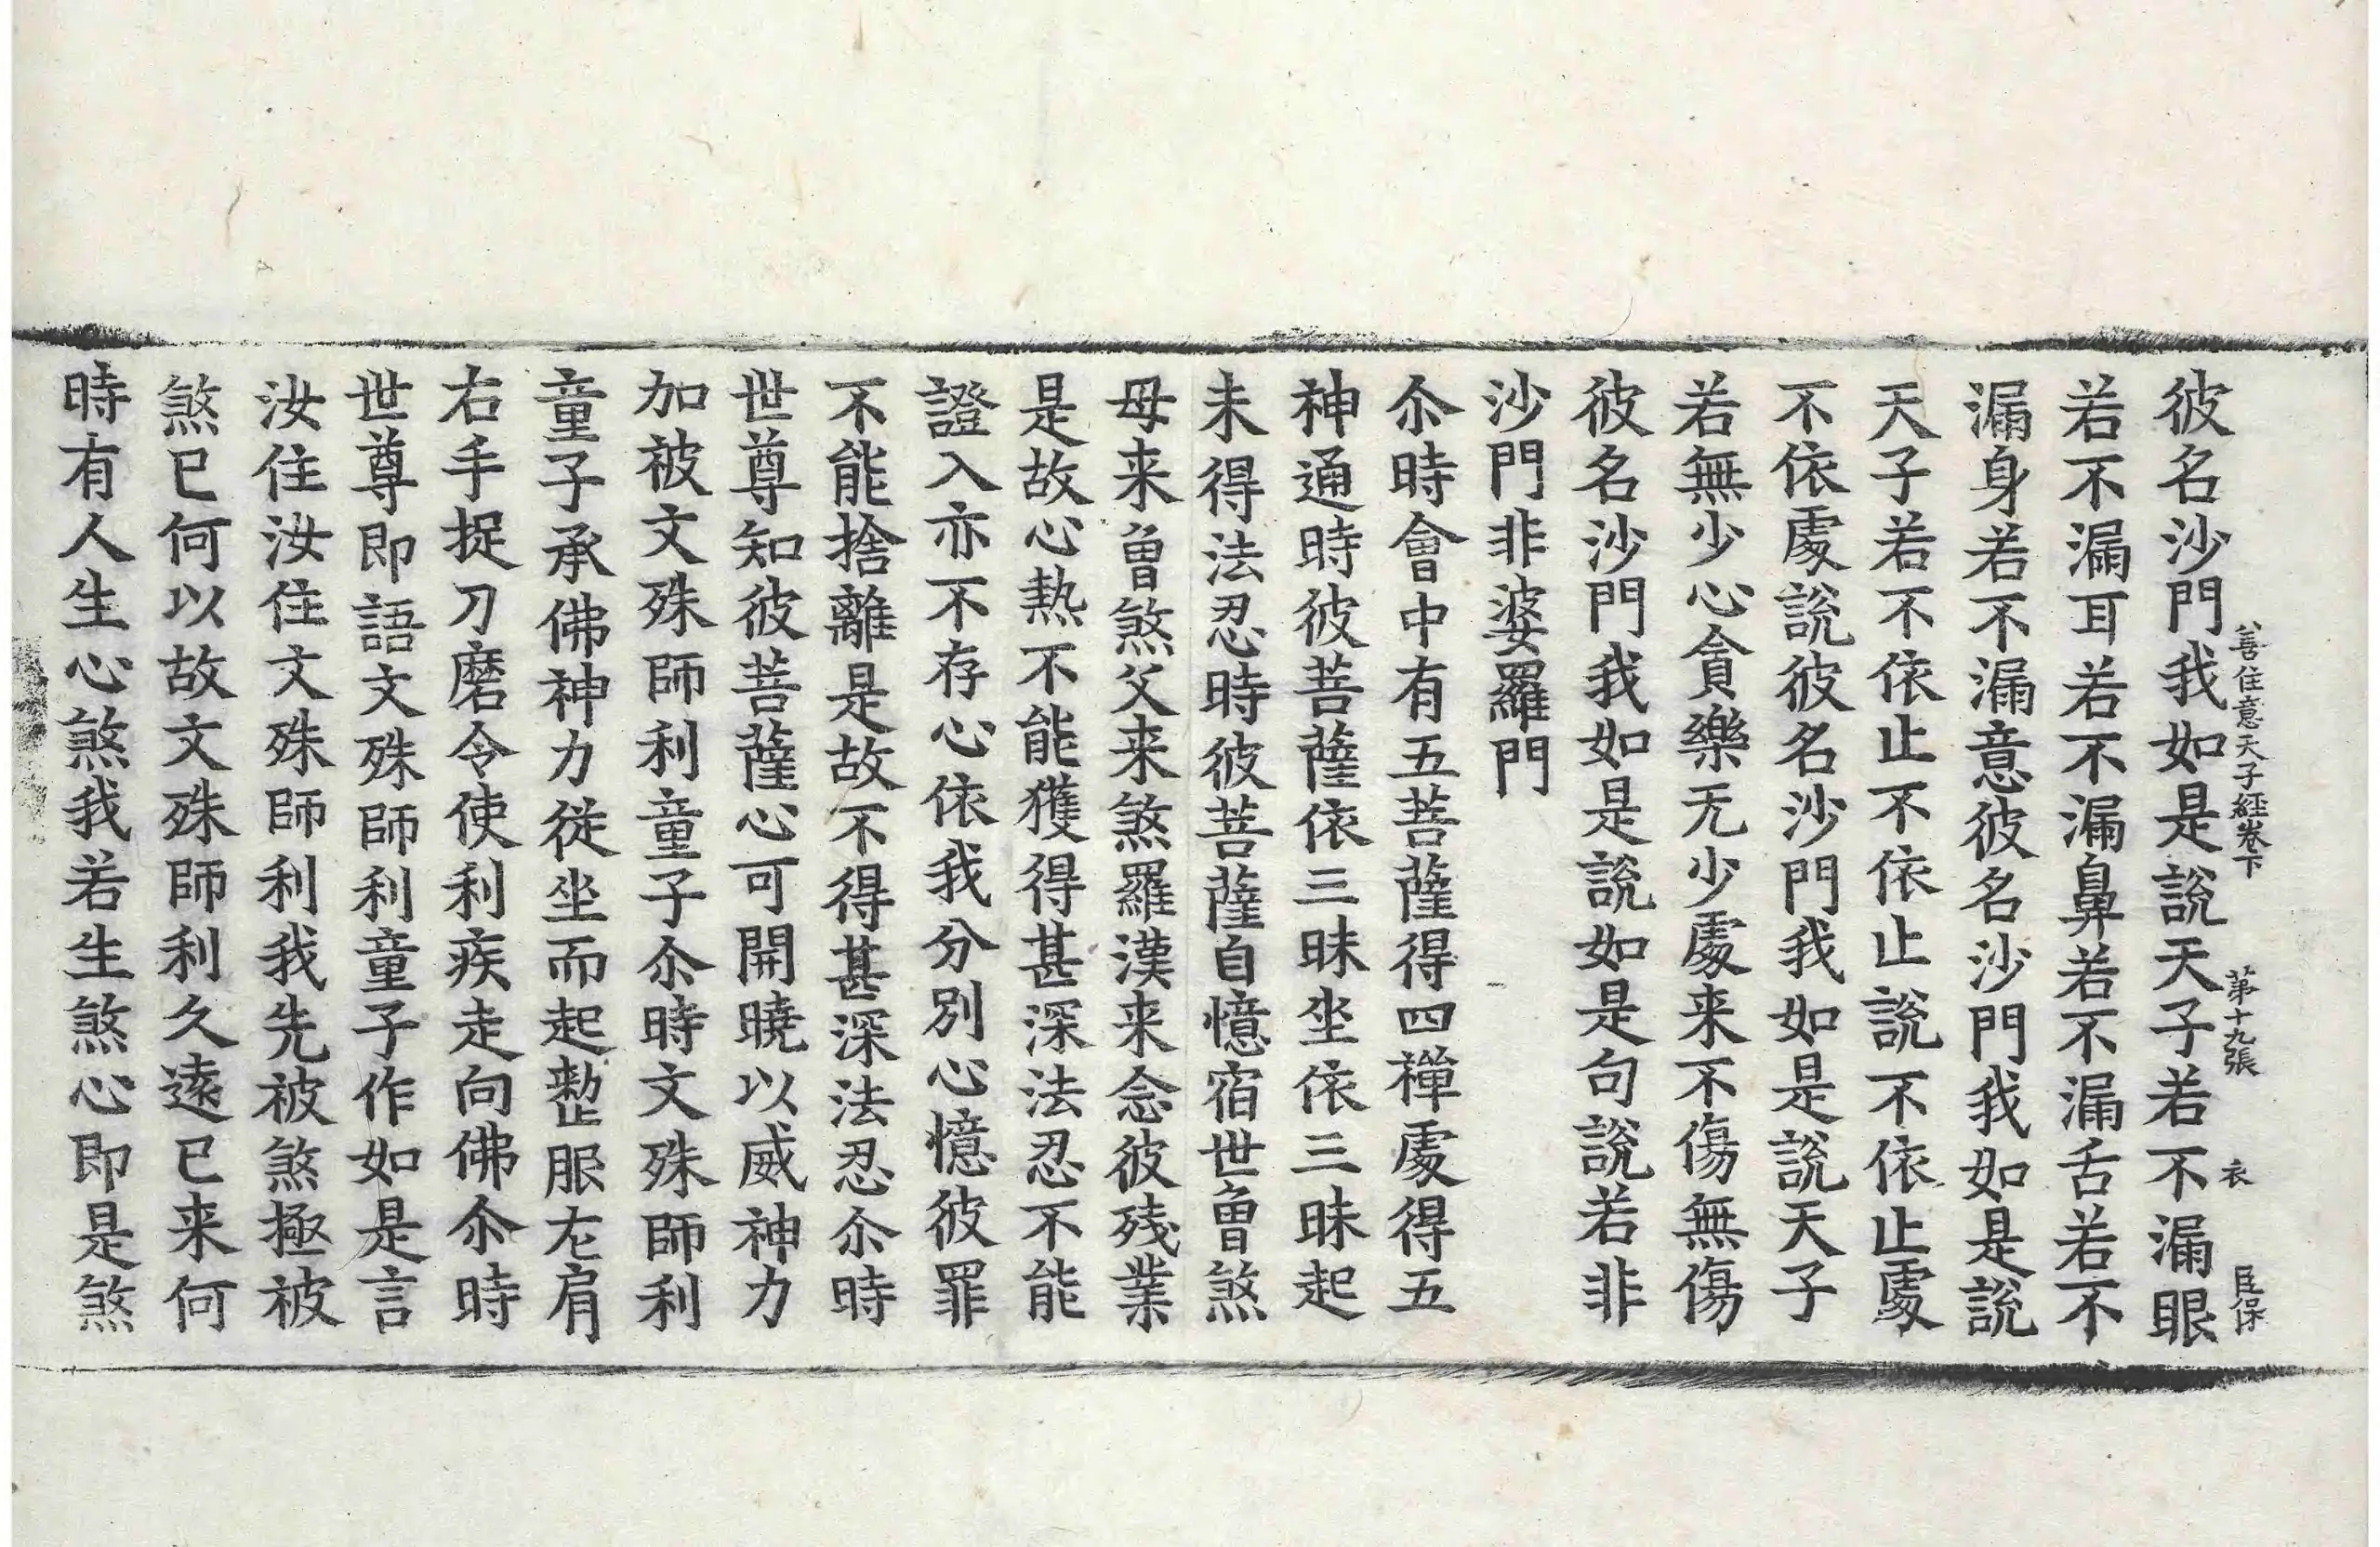 善住意天子經卷下 第十九張 衣 臣保
彼名沙門我如是說天子若不漏眼
若不漏耳若不漏鼻若不漏舌若不
漏身若不漏意彼名沙門我如是說
天子若不依止不依止說不依止處
不依處說彼名沙門我如是說天子
若無少心貪樂无少處来不傷無傷
彼名沙門我如是說如是句說若非
沙門非婆羅門
尒時會中有五菩薩得四禪處得五
神通時彼菩薩依三昧坐依三昧起
未得法忍時彼菩薩自憶宿世曾煞
母来曾煞父来煞羅漢来念彼残業
是故心熱不能獲得甚深法忍不能
證入亦不存心依我分別心憶彼罪
不能捨離是故不得甚深法忍尒時
世尊知彼菩薩心可開曉以威神力
加被文殊師利童子尒時文殊師利
童子承佛神力從坐而起整服左肩
右手捉刀磨令使利疾走向佛尒時
世尊即語文殊師利童子作如是言
汝住汝住文殊師利我先被煞極被
煞已何以故文殊師利久遠已来何
時有人生心煞我若生煞心即是煞